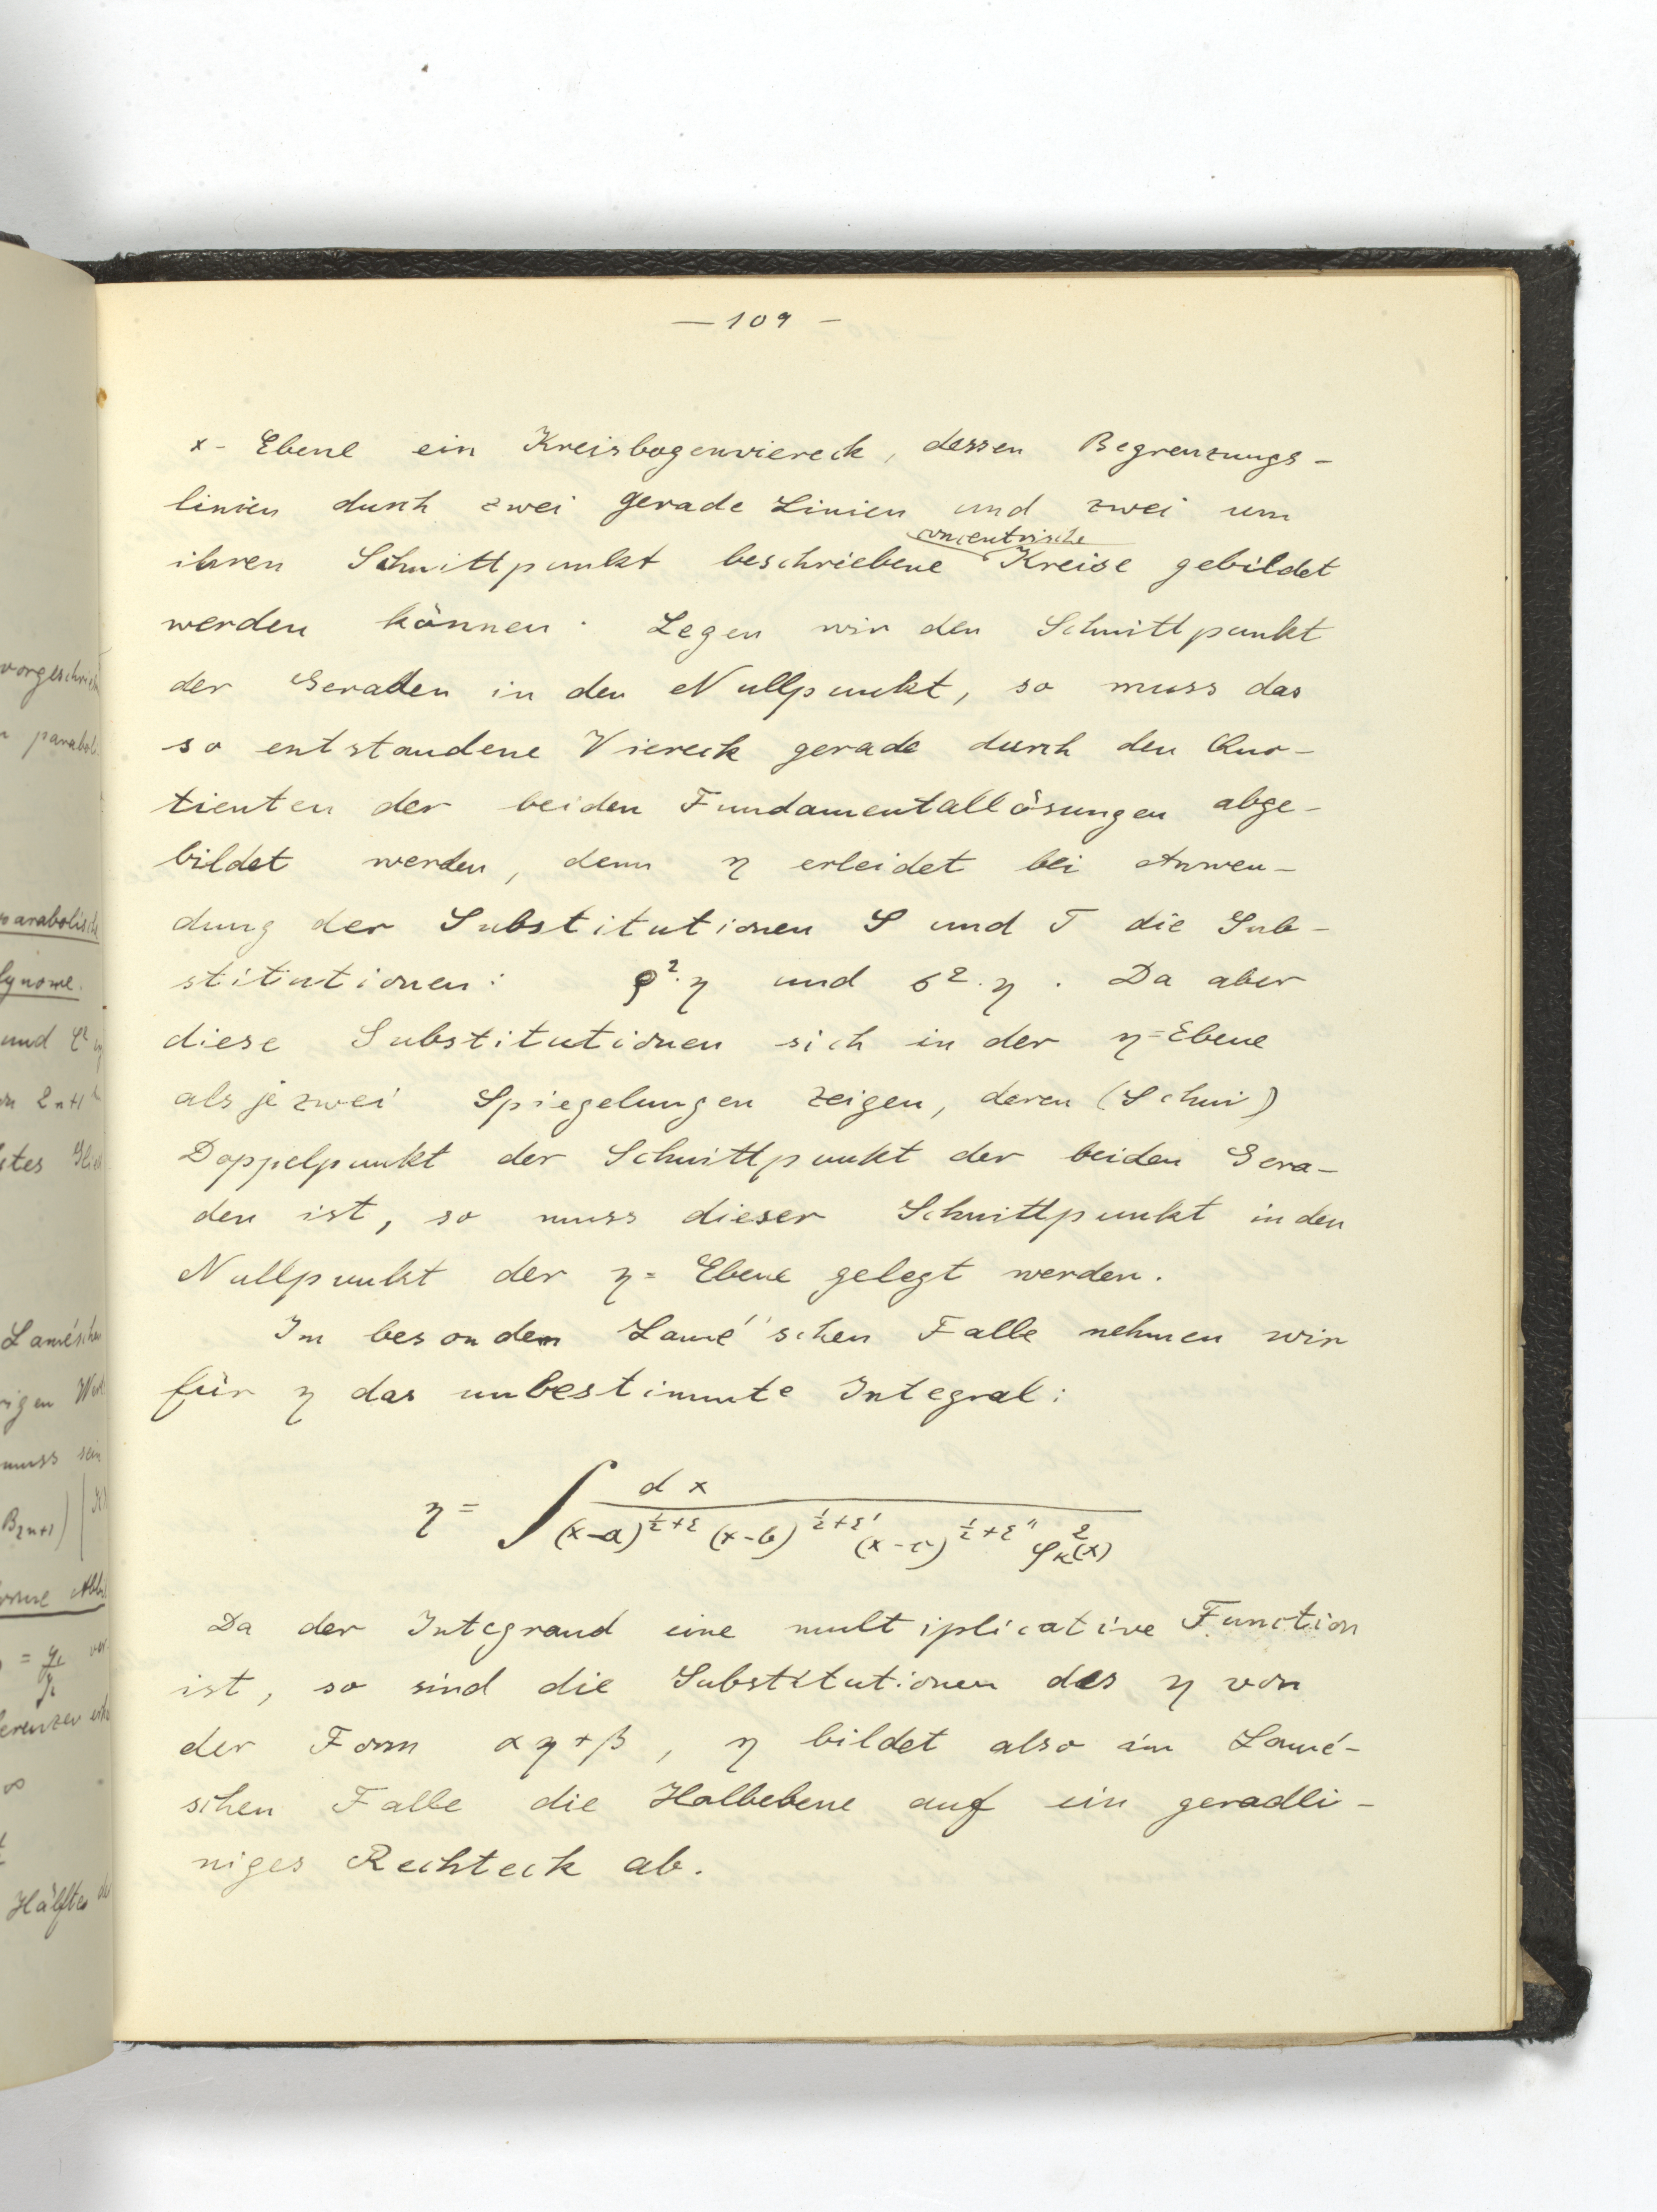 — 109 —
x- Ebene ein Kreisbogenviereck, dessen Begrenzungs-
linien durch zwei gerade Linien und zwei um
concentrische
ihren Schnittpunkt beschriebene Kreise gebildet
werden können. Legen wir den Schnittpunkt
der Geraden in den Nullpunkt, so muss das
so entstandene Viereck gerade durch den Quo-
tienten der beiden Fundamentallösungen abge-
bildet werden, denn η erleidet bei Anwen-
dung der Substitutionen S und T die Sub-
stitutionen: ρ²·η und σ²·η. Da aber
diese Substitutionen sich in der η=Ebene
als je zwei Spiegelungen zeigen, deren (Schni)
Doppelpunkt der Schnittpunkt der beiden Gera-
den ist, so muss dieser Schnittpunkt in den
Nullpunkt der η= Ebene gelegt werden.
Im besondern Lamé'schen Falle nehmen wir
für η das unbestimmte Integral:
η = ∫ dx / (x-a)^{½+ε} (x-b)^{½+ε'} (x-c)^{½+ε''} φ_κ²(x)
Da der Integrand eine multiplicative Function
ist, so sind die Substitutionen des η von
der Form αη+β, η bildet also im Lamé-
schen Falle die Halbebene auf ein geradli-
niges Rechteck ab.
vorgeschrie
parabol.
parabolische
lynome.
und
stes Glied
Laméschen
rigen
muss sein
B₂ₙ₊₁)
Hälften de